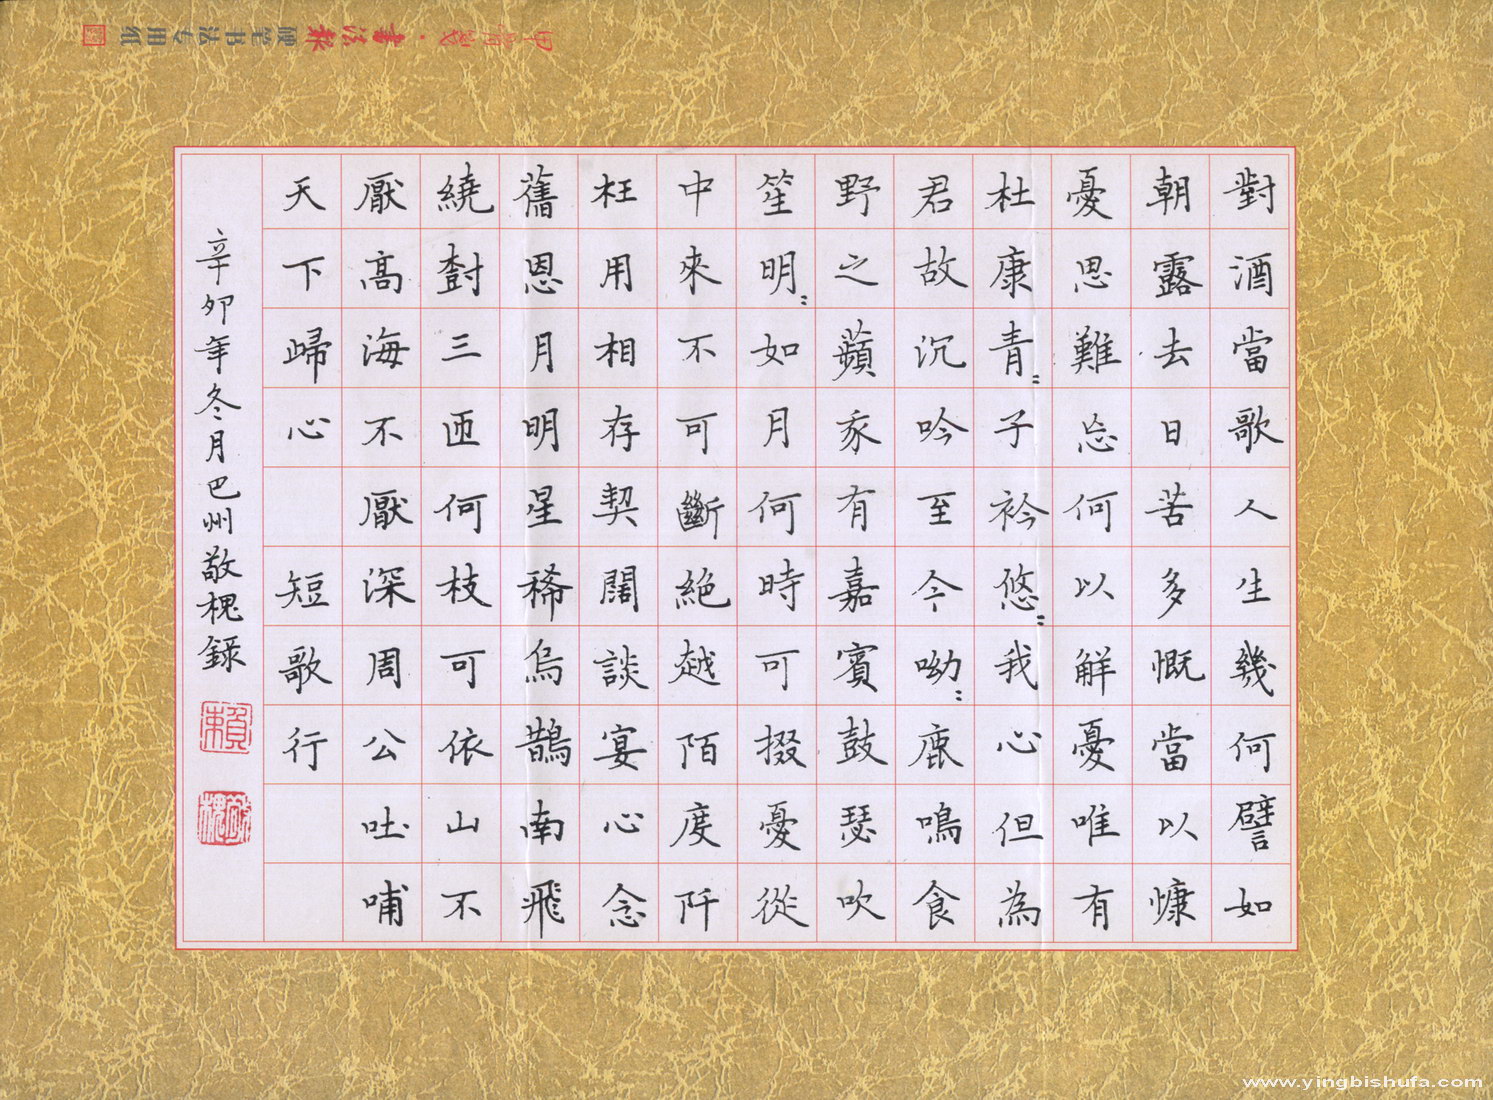 對酒當歌人生幾何譬如
朝露去日苦多慨當以慷
憂思難忘何以解憂唯有
杜康青〻子衿悠〻我心但為
君故沉吟至今呦〻鹿鳴食
野之蘋豕有嘉賓鼓瑟吹
笙明〻如月何時可掇憂從
中來不可斷絕越陌度阡
枉用相存契闊談宴心念
舊恩月明星稀烏鵲南飛
繞樹三匝何枝可依山不
厭高海不厭深周公吐哺
天下歸心 短歌行
辛卯年冬月巴州敬槐錄
賴
www.yingbishufa.com